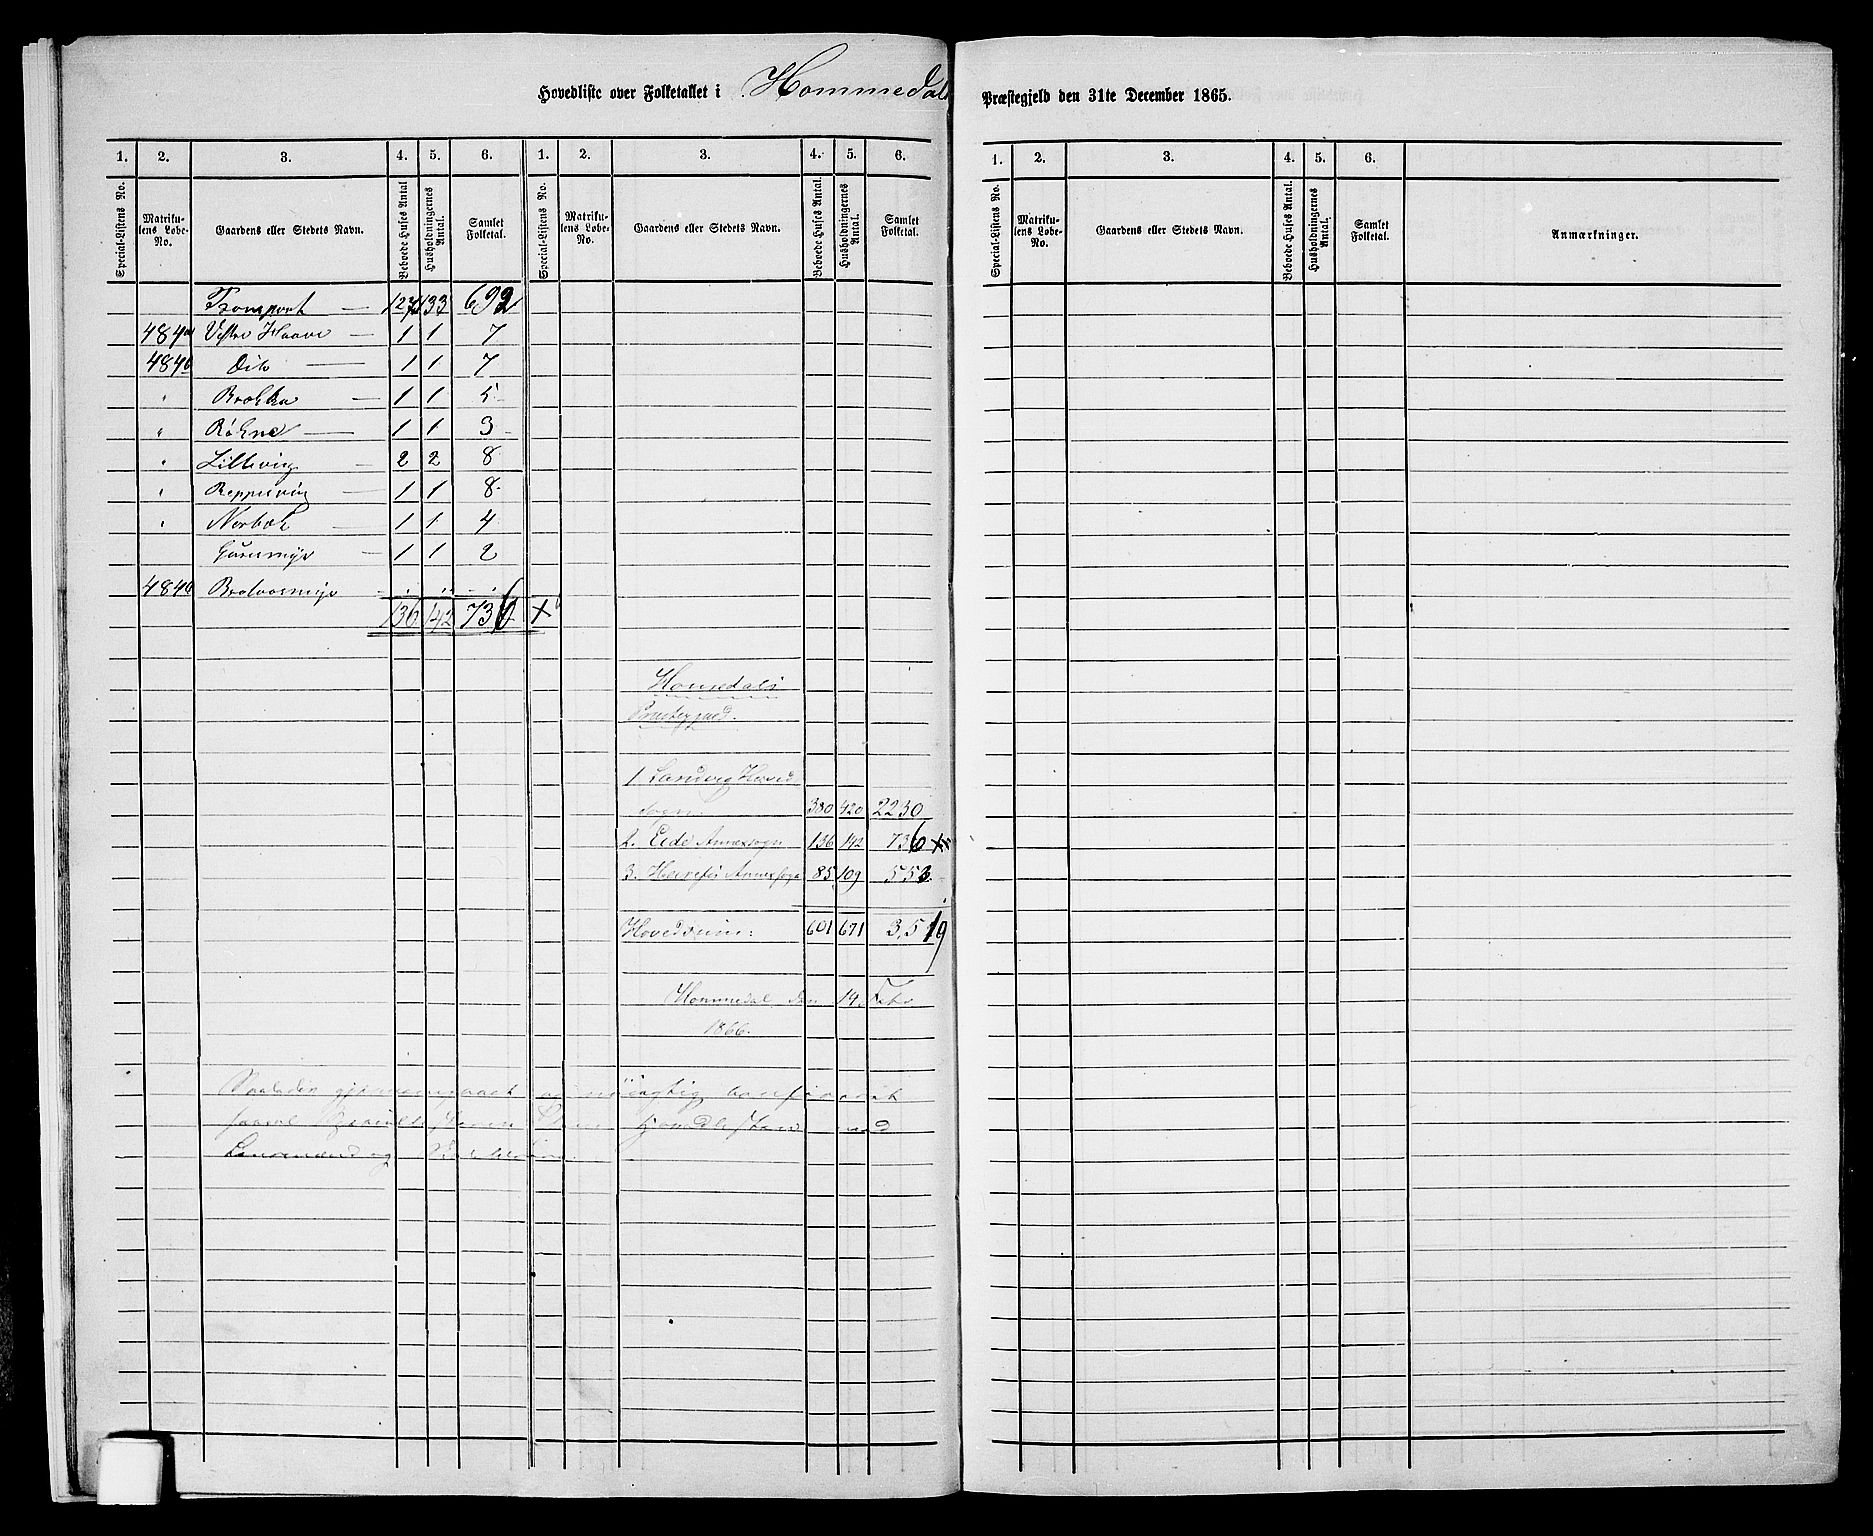 Hovedliste over Folketallet i Hommedal
Præstegjeld den 31te December 1865.
1. 2. 3. 4. 5. 6. 1. 2. 3. 4. 5. 6.
Special-Listens No. Matrikulens Løbe-No. Gaardens eller Stedets Navn. Beboede Huses Antal Husholdningernes Antal. Samlet Folketal. Special-Listens No. Matrikulens Løbe-No. Gaardens eller Stedets Navn. Beboede Huses Antal. Husholdningernes Antal. Samlet Folketal.
Transport — 127 133 692
484a Vestre Haave — 1 1 7
484b Dito — 1 1 7
" Brokka — 1 1 5
" Røkne — 1 1 3
" Lillevig — 2 2 8
" Reppesvig — 1 1 8
" Norbok — 1 1 4
Guremyr — 1 1 2
484b
136 142 736 +
Homedals
Præstegjæld.
1 Landvig Hoved
sogn 380 420 2230
2. Eide Annexsogn 136 142 736 +
3. Herefos Annexsogn 85 109 553
Hovedsum: 601 671 3,519
Hommedal den 19. Febr
1866.
1. 2. 3. 4. 5. 6.
Special-Listens No. Matrikulens Løbe-No. Gaardens eller Stedets Navn. Beboede Huses Antal. Husholdningernes Antal. Samlet Folketal. Anmærkninger.